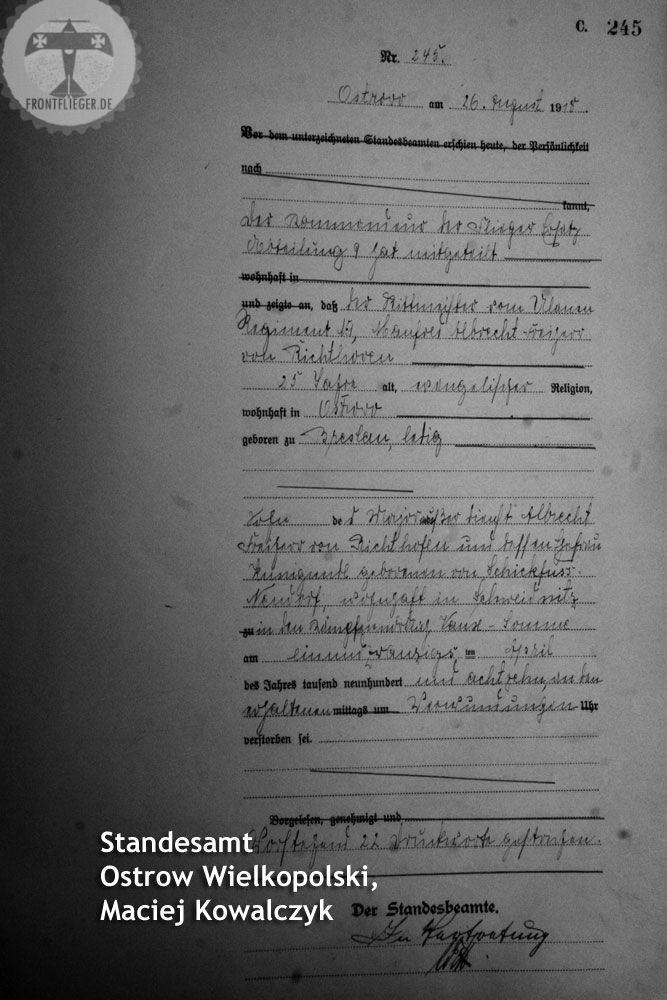 FRONTFLIEGER.DE
C. 245
Nr. 245.
Ostrowo am 26. August 1918.
Vor dem unterzeichneten Standesbeamten erschien heute, der Persönlichkeit
nach
kannt,
Der Kommandeur der Flieger Ersatz
Abteilung 9 hat mitgeteilt
wohnhaft in
und zeigte an, daß der Rittmeister vom Ulanen
Regiment N1, Manfred Albrecht Freiherr
von Richthoven
25 Jahre alt, evangelischer Religion,
wohnhaft in Ostrowo
geboren zu Breslau, ledig
Sohn des Major außer Dienst Albrecht
Freiherr von Richthofen und dessen Ehefrau
Kunigunde geborenen von Schickfuss-
Neudorf, wohnhaft in Schweidnitz
zu in den Vaux-Somme
am einundzwanzigsten April
des Jahres tausend neunhundert und achtzehn, an den
erhaltenen mittags um Verwundungen Uhr
verstorben sei.
Vorgelesen, genehmigt und
Vorstehend 22 Druckworte gestrichen.
Der Standesbeamte.
In Vertretung
Standesamt
Ostrow Wielkopolski,
Maciej Kowalczyk